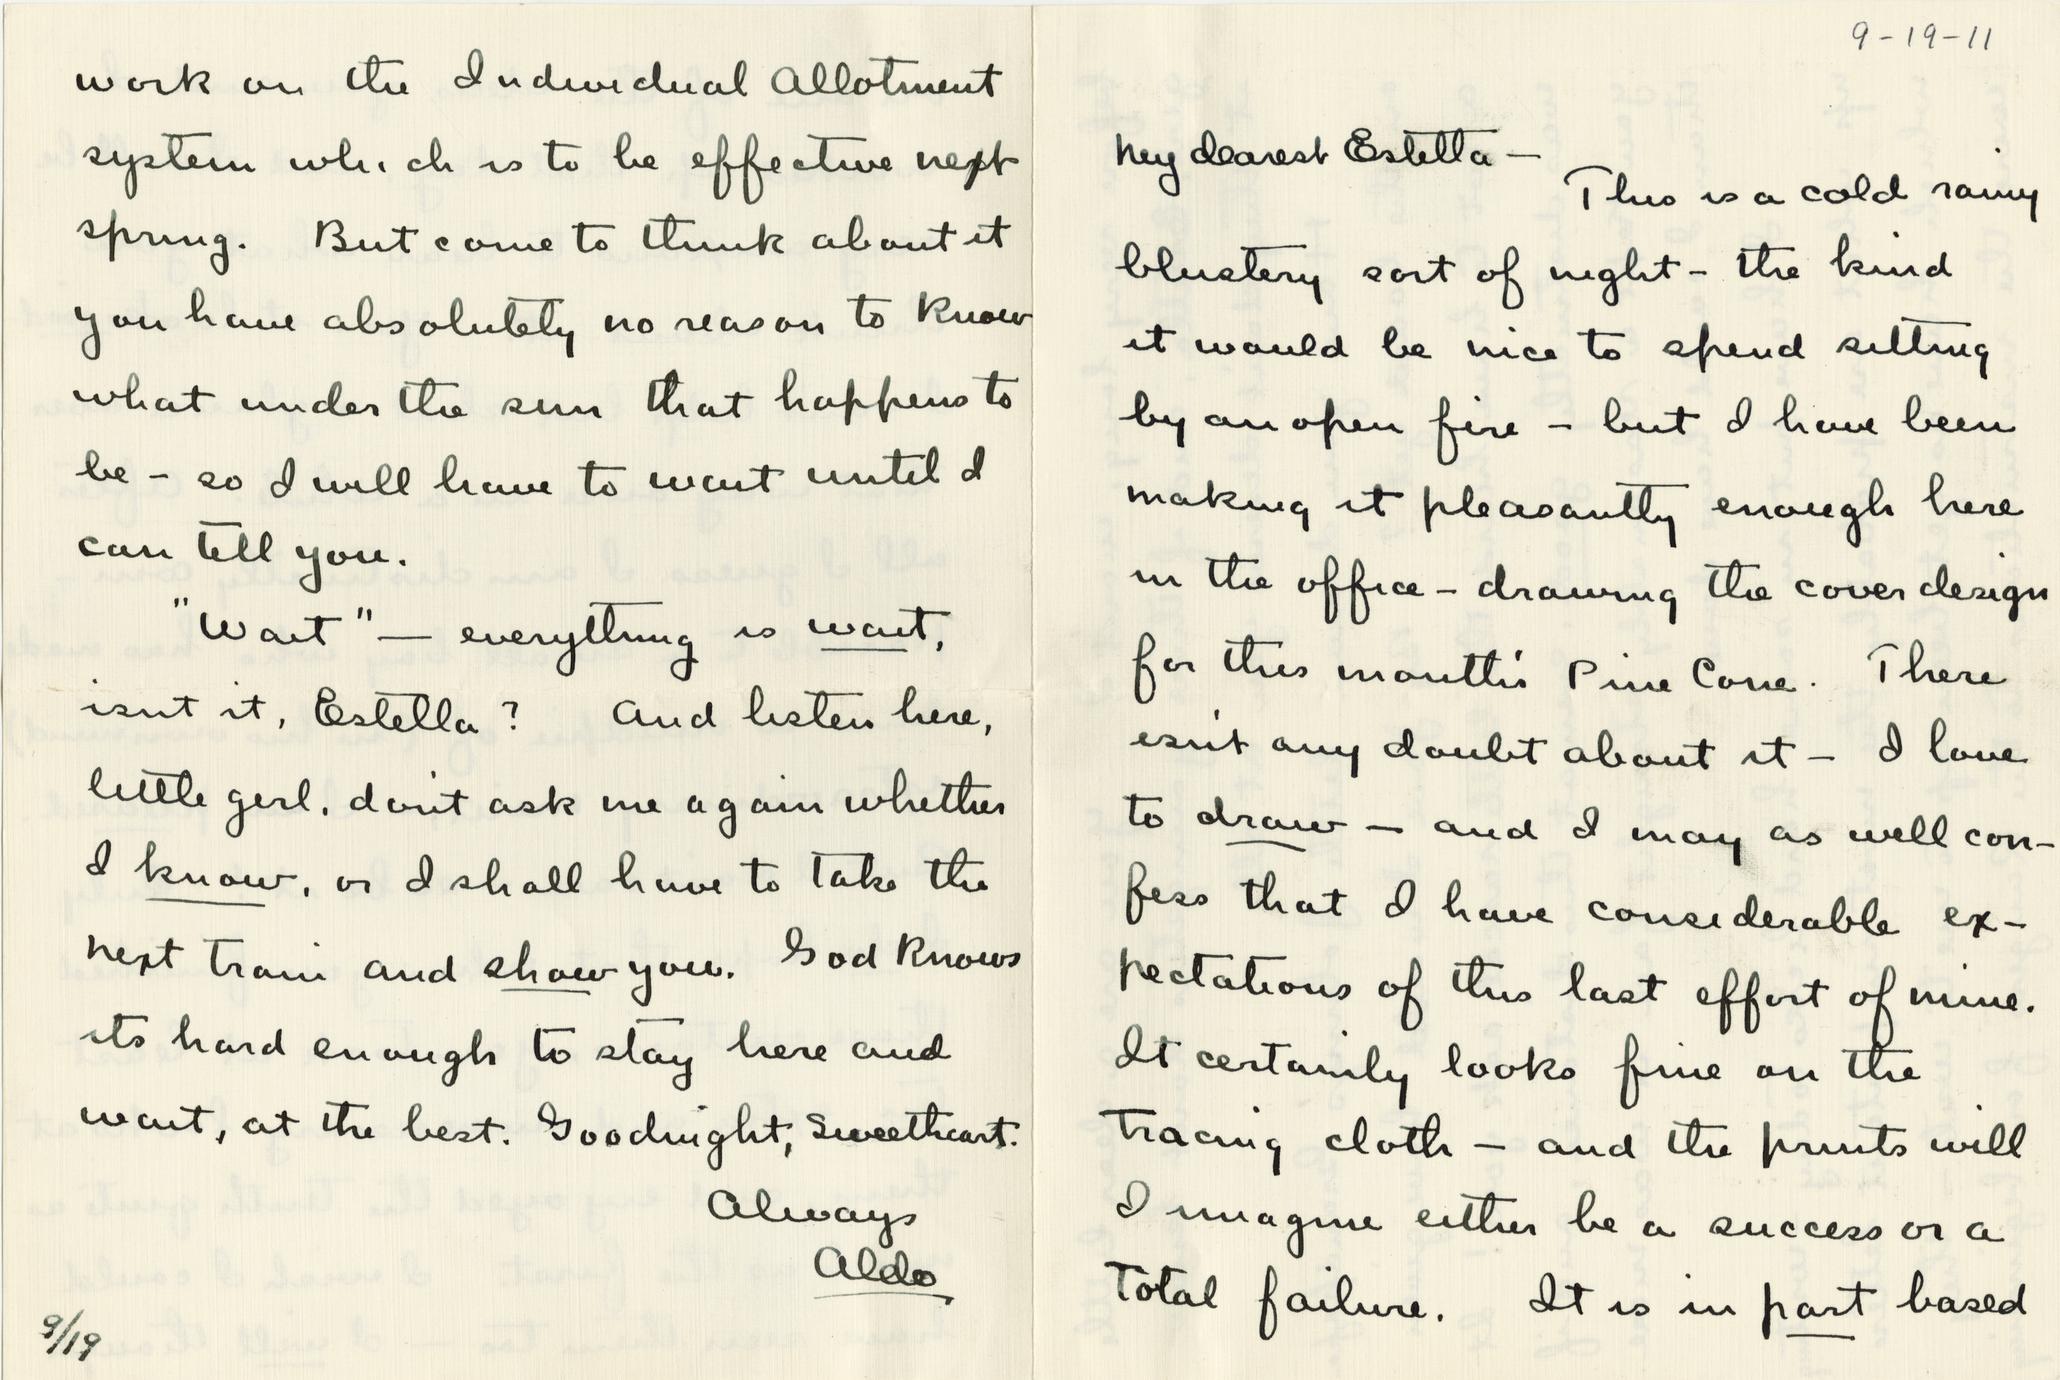 work on the Individual Allotment
system which is to be effective next
spring. But come to think about it
you have absolutely no reason to know
what under the sun that happens to
be – so I will have to wait until I
can tell you.
"Wait" — everything is wait,
isnt it, Estella? And listen here,
little girl, don't ask me again whether
I know, or I shall have to take the
next train and show you. God knows
its hard enough to stay here and
wait, at the best. Goodnight, Sweetheart.
Always
Aldo
9/19
9-19-11
My dearest Estella —
This is a cold rainy
blustery sort of night – the kind
it would be nice to spend sitting
by an open fire – but I have been
making it pleasantly enough here
in the office – drawing the cover design
for this month's Pine Cone. There
isn't any doubt about it – I love
to draw – and I may as well con-
fess that I have considerable ex-
pectations of this last effort of mine.
It certainly looks fine on the
tracing cloth – and the prints will
I imagine either be a success or a
total failure. It is in part based